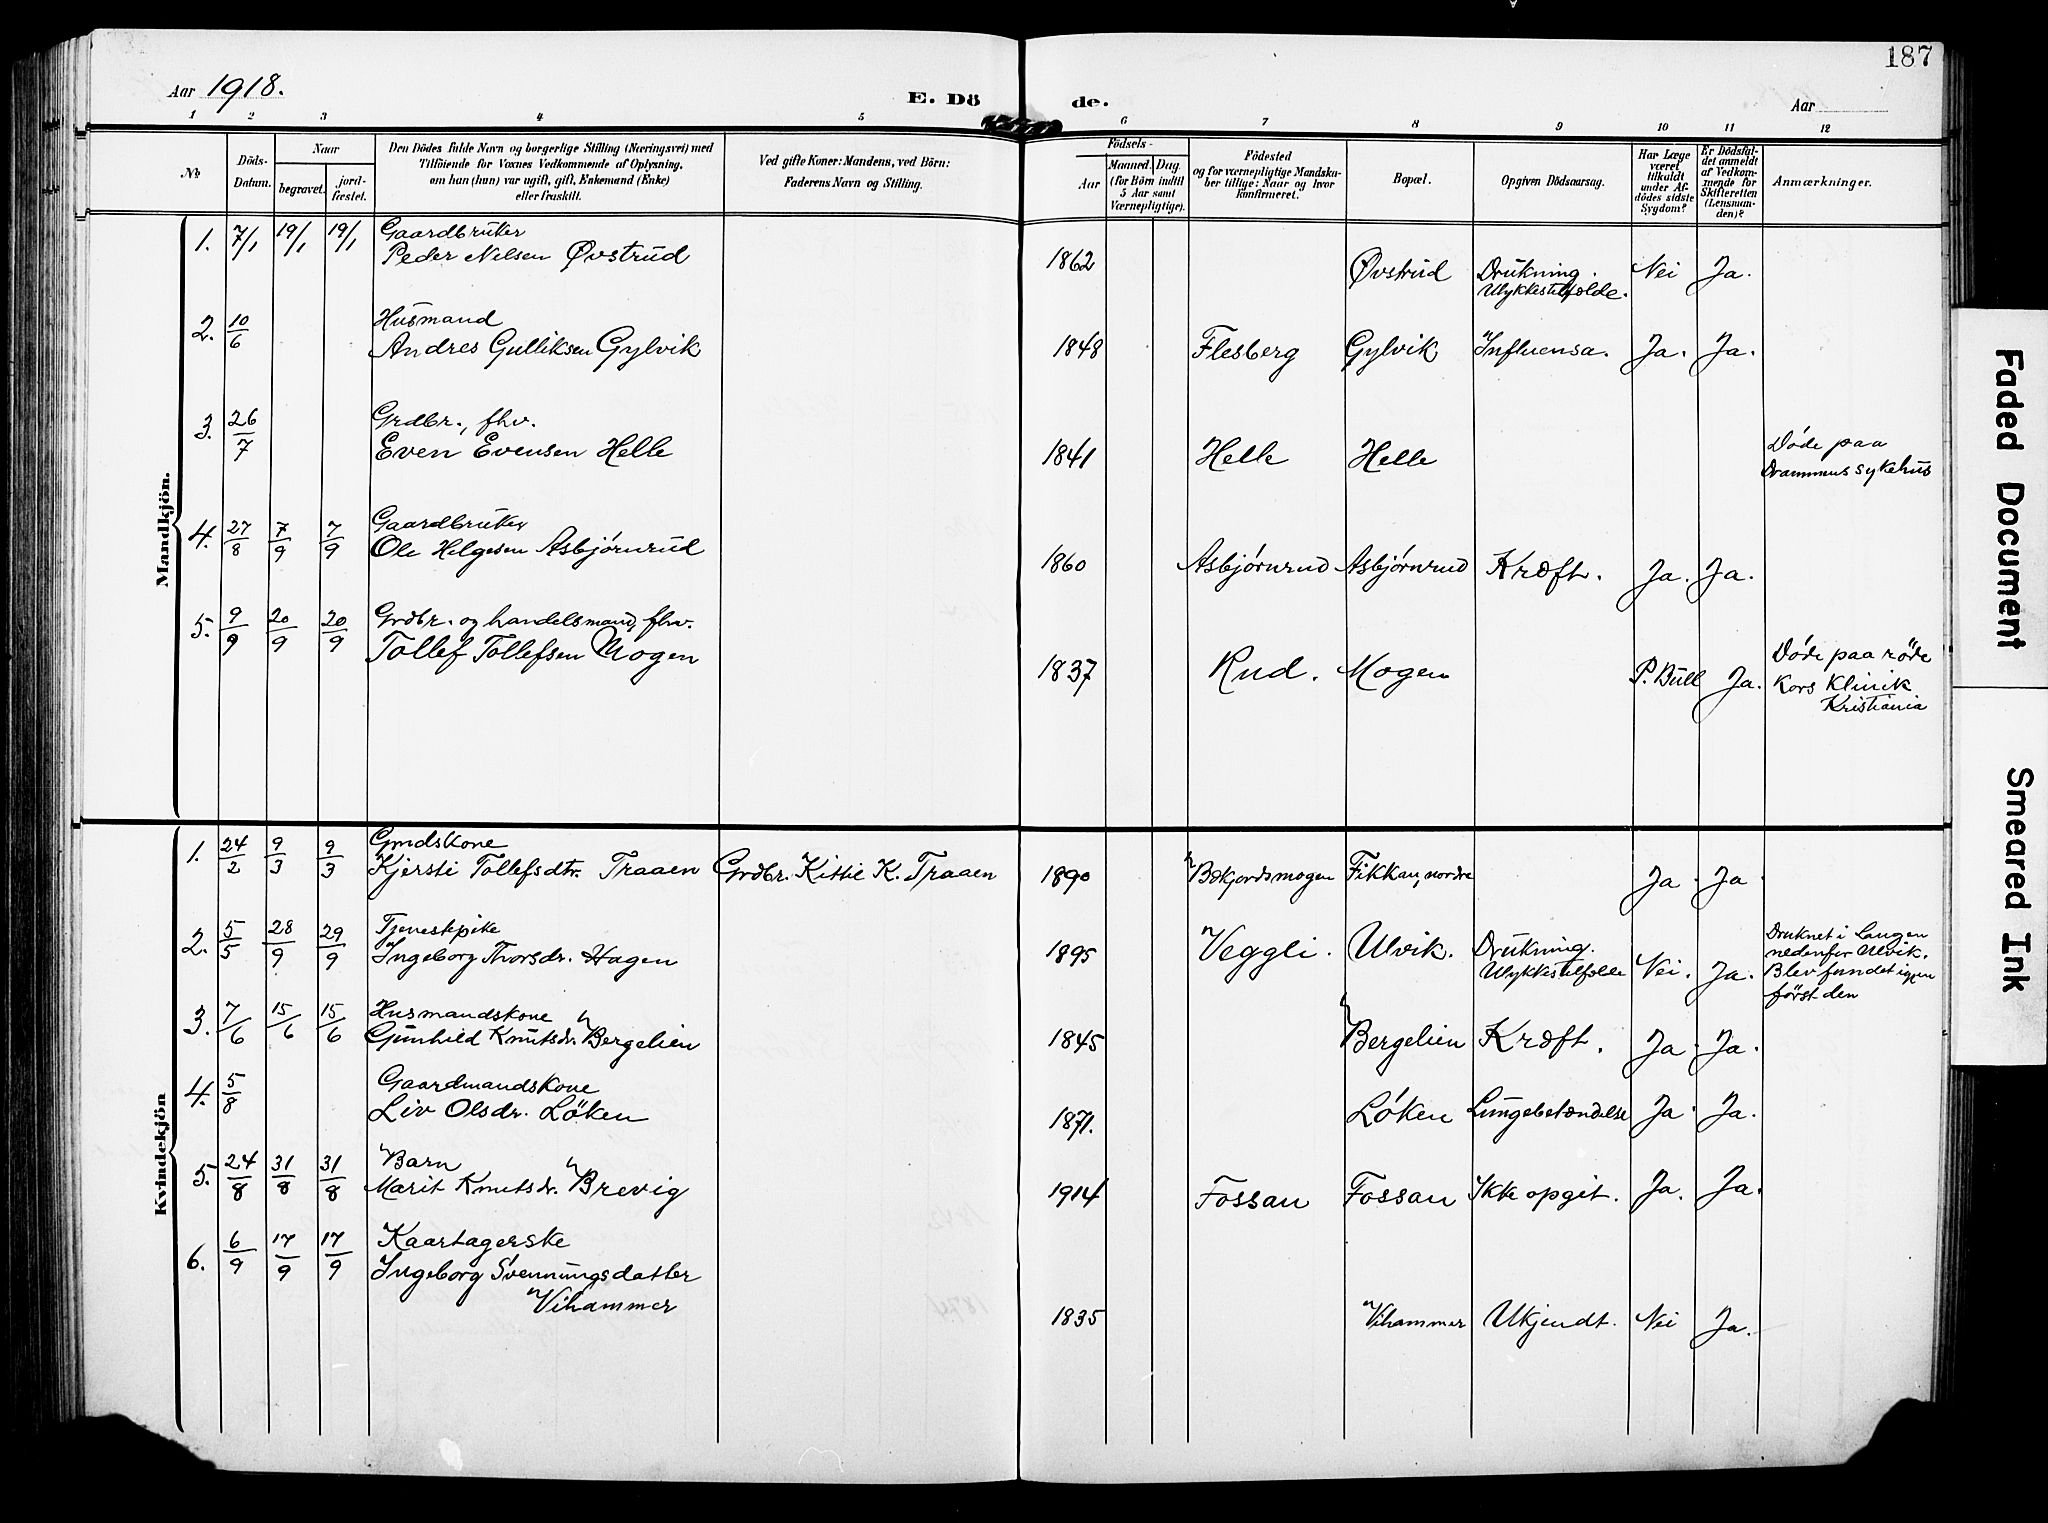 187
Aar 1918.
E. Dö de.
Aar
1 2 3 4 5 6 7 8 9 10 11 12
No
Döds-Datum.
Naar
begravet.
jord-fæstet.
Den Dödes fulde Navn og borgerlige Stilling (Næringsvei) med
Tilföiende for Voxnes Vedkommende af Oplysning,
om han (hun) var ugift, gift, Enkemand (Enke)
eller fraskilt.
Ved gifte Koner: Mandens, ved Börn:
Faderens Navn og Stilling.
Födsels-
Aar
Maaned. Dag.
(for Börn indtil
5 Aar samt
Værnepligtige).
Födested
og for værnepligtige Mandska-
ber tillige: Naar og hvor
konfirmeret.
Bopæl.
Opgiven Dödsaarsag.
Har Læge
været
tilkaldt
under Af-
dödes sidste
Sygdom?
Er Dödsfal-
det anmeldt
af Vedkom-
mende for
Skifteretten
(Lensman-
den)?
Anmærkninger.
Mandkjön.
1. 7/1 19/1 19/1 Gaardbruker
Peder Nilsen Øvstrud 1862 Øvstrud Drukning. Nei Ja.
Ulykkestilfælde.
2. 10/6 Husmand
Andres Gulliksen Gylvik 1848 Flesberg Gylvik Influensa. Ja. Ja.
3. 26/7 Grdbr., fhv.
Even Evensen Helle 1841 Helle Helle Døde paa
Drammens sykehus
4. 27/8 7/9 7/9 Gaardbruker
Ole Helgesen Asbjørnrud 1860 Asbjørnrud Asbjørnrud Kræft. Ja. Ja.
5. 9/9 20/9 20/9 Grdbr. og handelsmand, fhv.
Tollef Tollefsen Mogen 1837 Rud. Mogen P. Bull Ja. Døde paa røde
Kors Klinik
Kristiania
Kvindekjön
1. 24/2 9/3 9/3 Gmdskone
Kjersti Tollefsdtr. Traaen Grdbr. Kittil K. Traaen 1890 Bækjordsmogen Fikkan, nordre Ja. Ja.
2. 5/5 28/9 29/9 Tjenestpike
Ingeborg Thorsdr. Hagen 1895 Veggli. Ulvik. Drukning. Nei. Ja.
Ulykkestilfælde
Druknet i Laagen
nedenfor Ulvik.
Blev fundet igjen
først den
3. 7/6 15/6 15/6 Husmandskone
Gunhild Knutsdr. Bergelien 1845 Bergelien Kræft. Ja. Ja.
4. 5/8 Gaardmandskone
Liv Olsdr. Löken 1871. Løken Lungebetændelse Ja. Ja.
5. 24/8 31/8 31/8 Barn
Marit Knutsdr. Brevig 1914 Fossan Fossan Ikke opgit. Ja. Ja.
6. 6/9 17/9 17/9 Kaartagerske
Ingeborg Svennungsdatter
Vihammer 1835 Vihammer Ukjendt. Nei Ja.
Faded Document
Smeared Ink